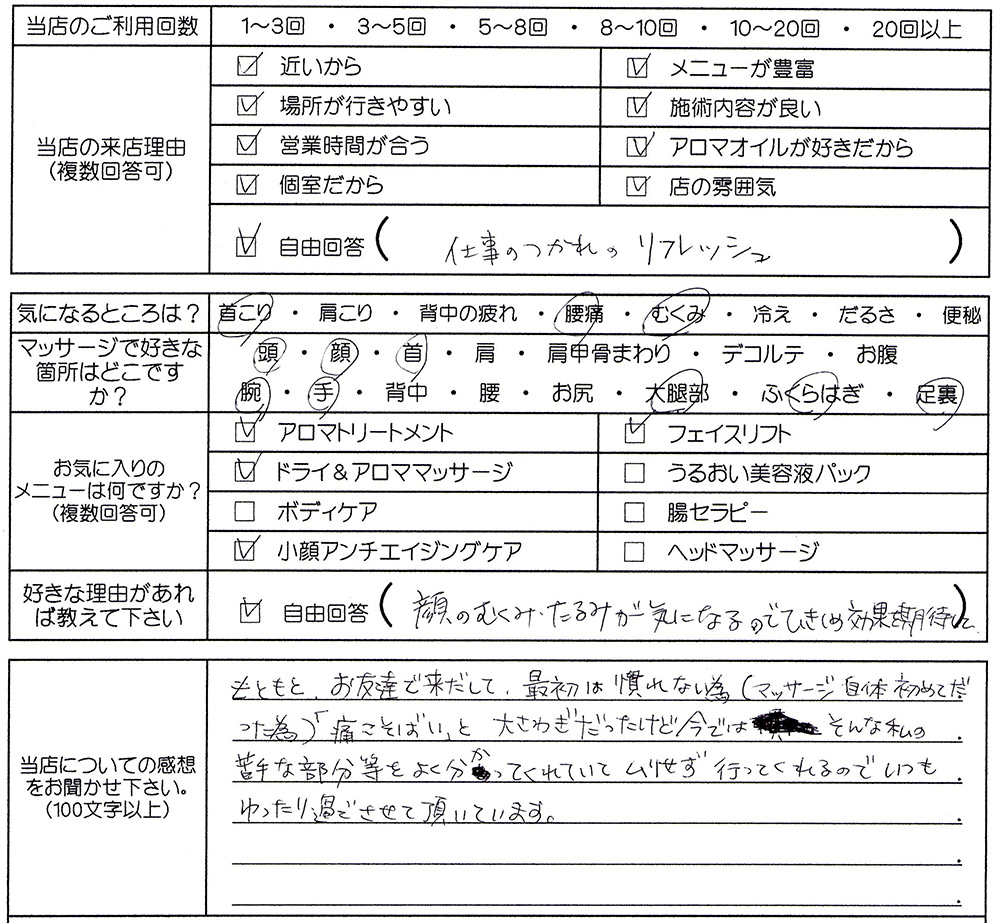 当店のご利用回数 1～3回 ・ 3～5回 ・ 5～8回 ・ 8～10回 ・ 10～20回 ・ 20回以上
当店の来店理由
(複数回答可)
☑ 近いから ☑ メニューが豊富
☑ 場所が行きやすい ☑ 施術内容が良い
☑ 営業時間が合う ☑ アロマオイルが好きだから
☑ 個室だから ☑ 店の雰囲気
☑ 自由回答 ( 仕事のつかれの リフレッシュ )
気になるところは？ 首こり ・ 肩こり ・ 背中の疲れ ・ 腰痛 ・ むくみ ・ 冷え ・ だるさ ・ 便秘
マッサージで好きな
箇所はどこです
か？
頭 ・ 顔 ・ 首 ・ 肩 ・ 肩甲骨まわり ・ デコルテ ・ お腹
腕 ・ 手 ・ 背中 ・ 腰 ・ お尻 ・ 大腿部 ・ ふくらはぎ ・ 足裏
お気に入りの
メニューは何ですか？
(複数回答可)
☑ アロマトリートメント ☑ フェイスリフト
☑ ドライ＆アロママッサージ □ うるおい美容液パック
□ ボディケア □ 腸セラピー
☑ 小顔アンチエイジングケア □ ヘッドマッサージ
好きな理由があれ
ば教えて下さい
☑ 自由回答 ( 顔のむくみ・たるみが気になるのでひきしめ効果を期待して )
当店についての感想
をお聞かせ下さい。
(100文字以上)
もともと、お友達で来だして、最初は慣れない為(マッサージ自体初めてだ
った為)「痛こそばい」と 大さわぎだったけど今では そんな私の
苦手な部分等をよく分かってくれていてムリせず行ってくれるのでいつも
ゆったり過ごさせて頂いています。